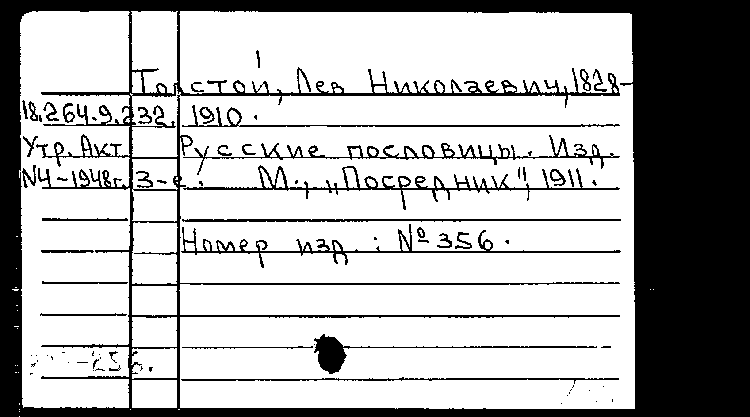 Толстой, Лев Николаевич, 1828-
18.264.9.232. 1910.
Утр. Акт Русские пословицы. Изд.
N4-1948г. 3-е. М., „Посредник", 1911.
Номер изд.: № 356.